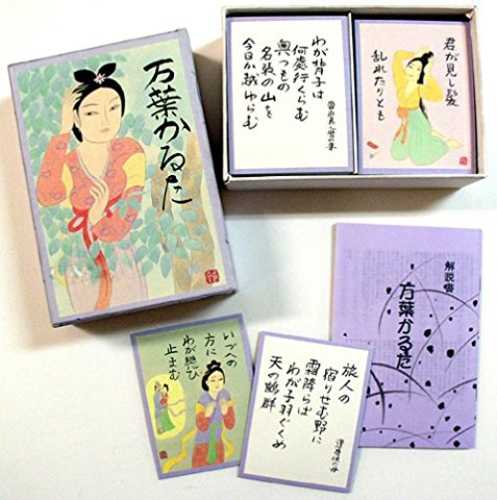 万葉かるた
わが背子は
何處行くらむ
奥つもの
名張の山を
今日か越ゆらむ
君が見し髪
乱れたりとも
いづへの
方に
わが恋ひ
止まむ
旅人の
宿りせむ野に
霜降らば
わが子羽ぐくめ
天の鶴群
解説書
万葉かるた